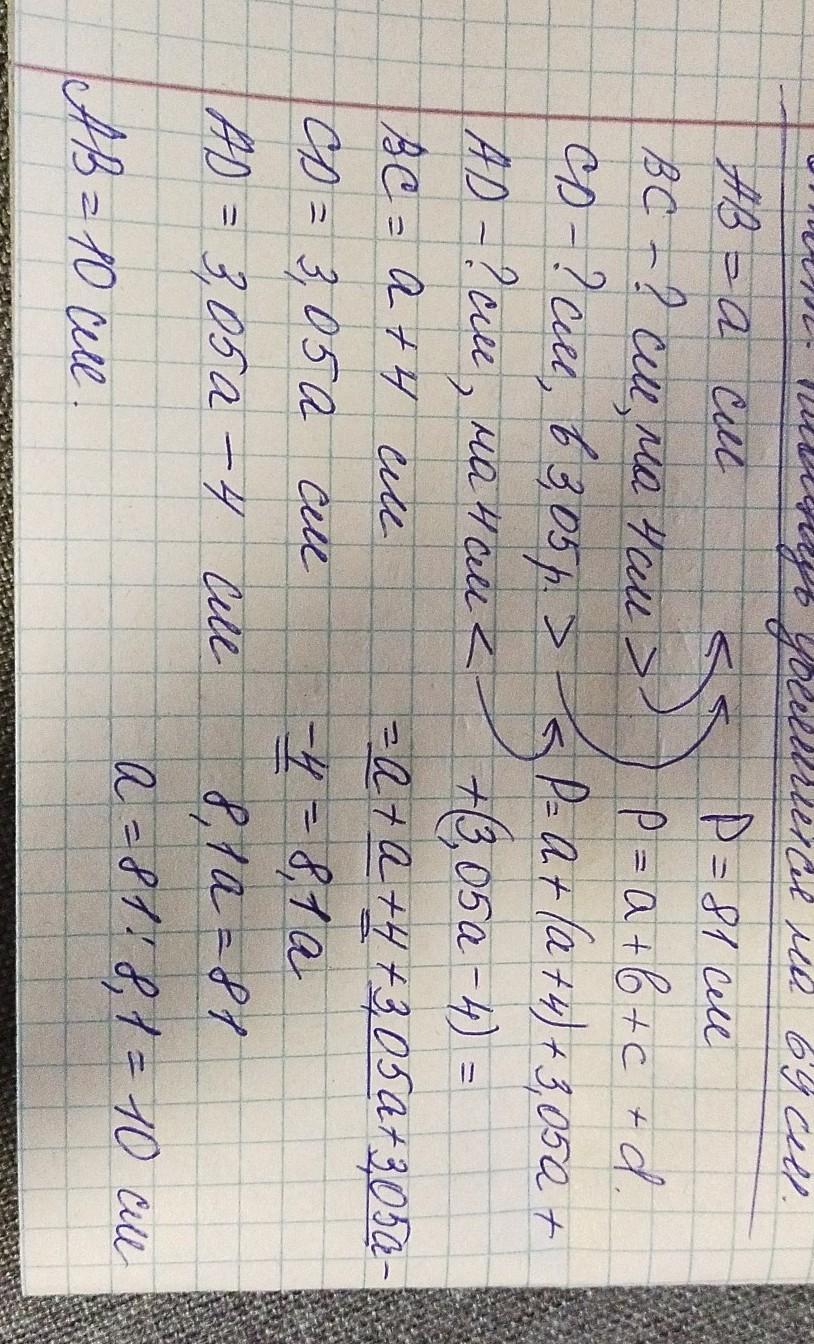 площадь уменьшится на бусин.
AB = a см
BC - ? см, на 4см >
CD - ? см, в 3,05 р. >
AD - ? см, на 4см <
BC = a + 4 см
CD = 3,05a см
AD = 3,05a - 4 см
AB = 10 см.
P = 81 см
P = a + b + c + d.
P = a + (a + 4) + 3,05a +
+ (3,05a - 4) =
= a + a + 4 + 3,05a + 3,05a -
- 4 = 8,1a
8,1a = 81
a = 81 : 8,1 = 10 см